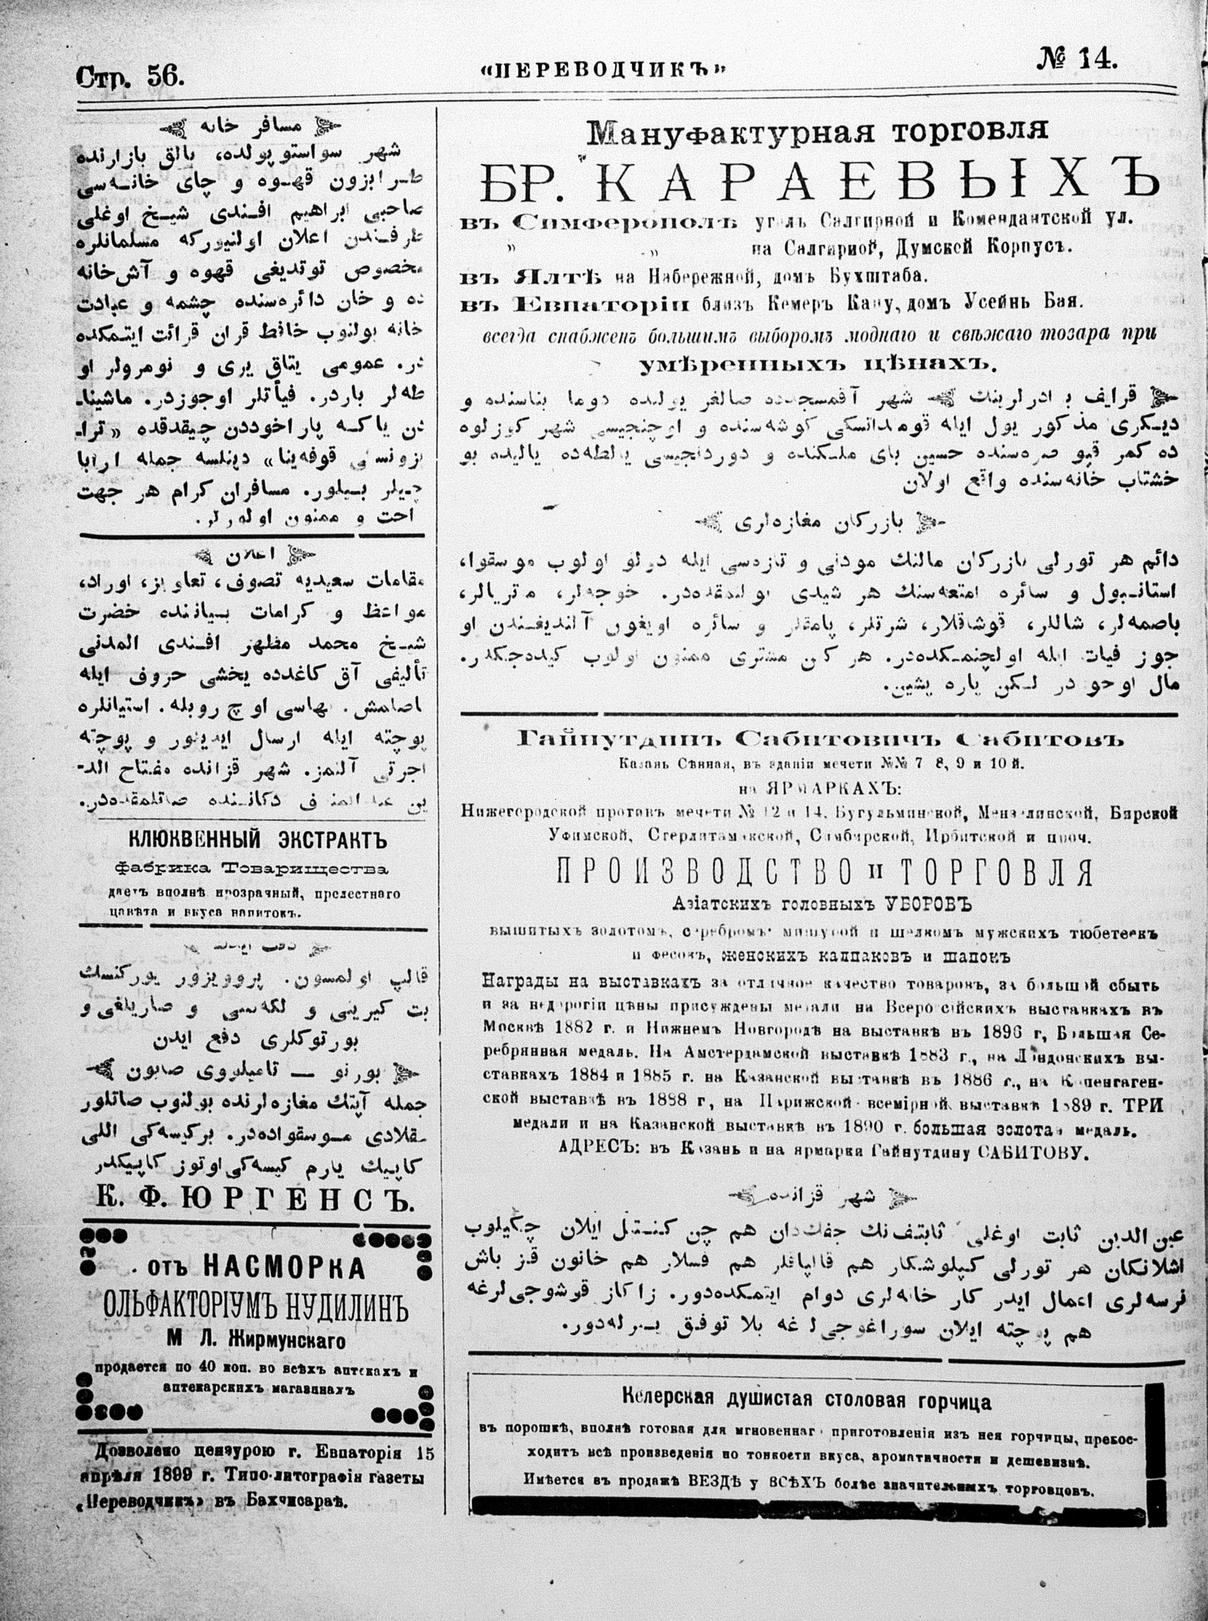 Стр. 56.
«ПЕРЕВОДЧИКЪ»
№ 14.
مسافر خانه
شهر سواستوپولده، بالق بازارنده
طرابزون قهوه و چای خانه‌سی
صاحبی ابراهیم افندی شیخ اوغلی
طرفندن اعلان اولنیورکه مسلمانلره
مخصوص توتدیغی قهوه و آش‌خانه
ده و خان دائره‌سنده چشمه و عبادت
خانه بولنوب حافظ قران قرائت ایتمکده
در. عمومی یتاق یری و نومرولر او
طه‌لر باردر. فیأتلر اوجوزدر. ماشینا-
دن یاکه پاراخوددن چیقدقده «ترا-
بزونسکی قوفه‌ینا» دینلسه جمله ارابا
چیلر بیلور. مسافران کرام هر جهت
راحت و ممنون اولورلر.
اعلان
مقامات سعیدیه تصوف، تعاویز، اوراد،
مواعظ و کرامات بیاننده حضرت
شیخ محمد مظهر افندی المدنی
تألیفی آق کاغدده یخشی حروف ایله
باصلمش. بهاسی اوچ روبله. استیانلره
پوچته ایله ارسال ایدیلور و پوچته
اجرتی آلنمز. شهر قزانده مفتاح الد-
ین عبدالمناف دکاننده صاتلمقده‌در.
КЛЮКВЕННЫЙ ЭКСТРАКТЪ
фабрика Товарищества
даетъ вполнѣ прозрачный, прелестнаго
цвѣта и вкуса напитокъ.
دقت ایدیکز
قالپ اولمسون. پروویزور یورکنسک
بت کیرینی و لکه‌سی و صاریلغی و
بورتوکلری دفع ایدن
بورنو — تامیلووی صابون
جمله آپتک مغازه‌لرنده بولنوب صاتلور
سقلادی موسقواده‌در. برکیسه‌کی اللی
کاپیك یارم کیسه‌کی اوتوز کاپیکدر
К. Ф. ЮРГЕНСЪ.
отъ НАСМОРКА
ОЛЬФАКТОРІУМЪ НУДИЛИНЪ
М Л. Жирмунскаго
продается по 40 коп. во всѣхъ аптекахъ и
аптекарскихъ магазинахъ
Дозволено цензурою г. Евпаторія 15
апрѣля 1899 г. Типо-литографія газеты
«Переводчикъ» въ Бахчисараѣ.
Мануфактурная торговля
БР. КАРАЕВЫХЪ
въ Симферополѣ уголъ Салгирной и Комендантской ул.
„ „ на Салгирной, Думскей Корпусъ.
въ Ялтѣ на Набережной, домъ Бухштаба.
въ Евпаторіи близъ Кемеръ Капу, домъ Усейнъ Бая.
всегда снабженъ большимъ выборомъ моднаго и свѣжаго товара при
умѣренныхъ цѣнахъ.
قرایف برادرلرینك شهر آقمسجدده صالغر یولنده دوما بناسنده و
دیکری مذکور یول ایله قومداننسکی کوشه‌سنده و اوچنجیسی شهر کوزلوه
ده کمر قپو صره‌سنده حسین بای ملکنده و دوردنجیسی یالطه‌ده یالیده بو
خشتاب خانه‌سنده واقع اولان
بازرکان مغازه‌لری
دائم هر تورلی بازرکان مالنك مودنی و تازه‌سی ایله دولو اولوب موسقوا،
استانبول و سائره امتعه‌سنك هر شیدی بولنمقده‌در. خوجه‌لر، متریالر،
باصمه‌لر، شاللر، قوشاقلار، شرتلر، پامقلر و سائره اویغون آلندیغندن او
جوز فیات ایله اولچنمکده‌در. هر کن مشتری ممنون اولوب کیده‌جکدر.
مال اوجوزدر لکن پاره پشین.
Гайнутдинъ Сабитовичъ Сабитовъ
Казань Сѣнная, въ зданіи мечети №№ 7 8, 9 и 10 й.
на ЯРМАРКАХЪ:
Нижегородской противъ мечети № 12 и 14. Бугульминской, Мензелинской, Бирской
Уфимской, Стерлитамакской, Симбирской, Ирбитской и проч.
ПРОИЗВОДСТВО и ТОРГОВЛЯ
Азіатскихъ головныхъ УБОРОВЪ
вышитыхъ золотомъ, серебромъ мишурой и шелкомъ мужскихъ тюбетеекъ
и фесокъ, женскихъ калпаковъ и шапокъ
Награды на выставкахъ за отличное качество товаровъ, за большой сбытъ
и за недорогія цѣны присуждены медали на Всероссійскихъ выставкахъ въ
Москвѣ 1882 г. и Нижнемъ Новгородѣ на выставкѣ въ 1896 г, Большая Се-
ребрянная медаль. На Амстердамской выставкѣ 1883 г., на Лондонскихъ вы-
ставкахъ 1884 и 1885 г. на Казанской выставкѣ въ 1886 г., на Копенгаген-
ской выставкѣ въ 1888 г, на Парижской всемірной выставкѣ 1889 г. ТРИ
медали и на Казанской выставкѣ въ 1890 г. большая золотая медаль.
АДРЕСЪ: въ Казань и на ярмарки Гайнутдину САБИТОВУ.
شهر قزانده
عین‌الدین ثابت اوغلی ثابتفنك جفکدان هم چن کنتل ایلان چکیلوب
اشلانکان هر تورلی کیلوشکار هم قالپاقلر هم فسلار هم خاتون قز باش
نرسه‌لری اعمال ایدر کار خانه‌لری دوام ایتمکده‌دور. زاکاز قرشوجی‌لرغه
هم پوچته ایلان سوراغوجی‌لرغه بلا توفق بیرله‌دور.
Келерская душистая столовая горчица
въ порошкѣ, вполнѣ готовая для мгновеннаго приготовленія изъ нея горчицы, превос-
ходитъ всѣ произведенія по тонкости вкуса, ароматичности и дешевизнѣ.
Имѣется въ продажѣ ВЕЗДѢ у ВСѢХЪ болѣе значительныхъ торговцевъ.